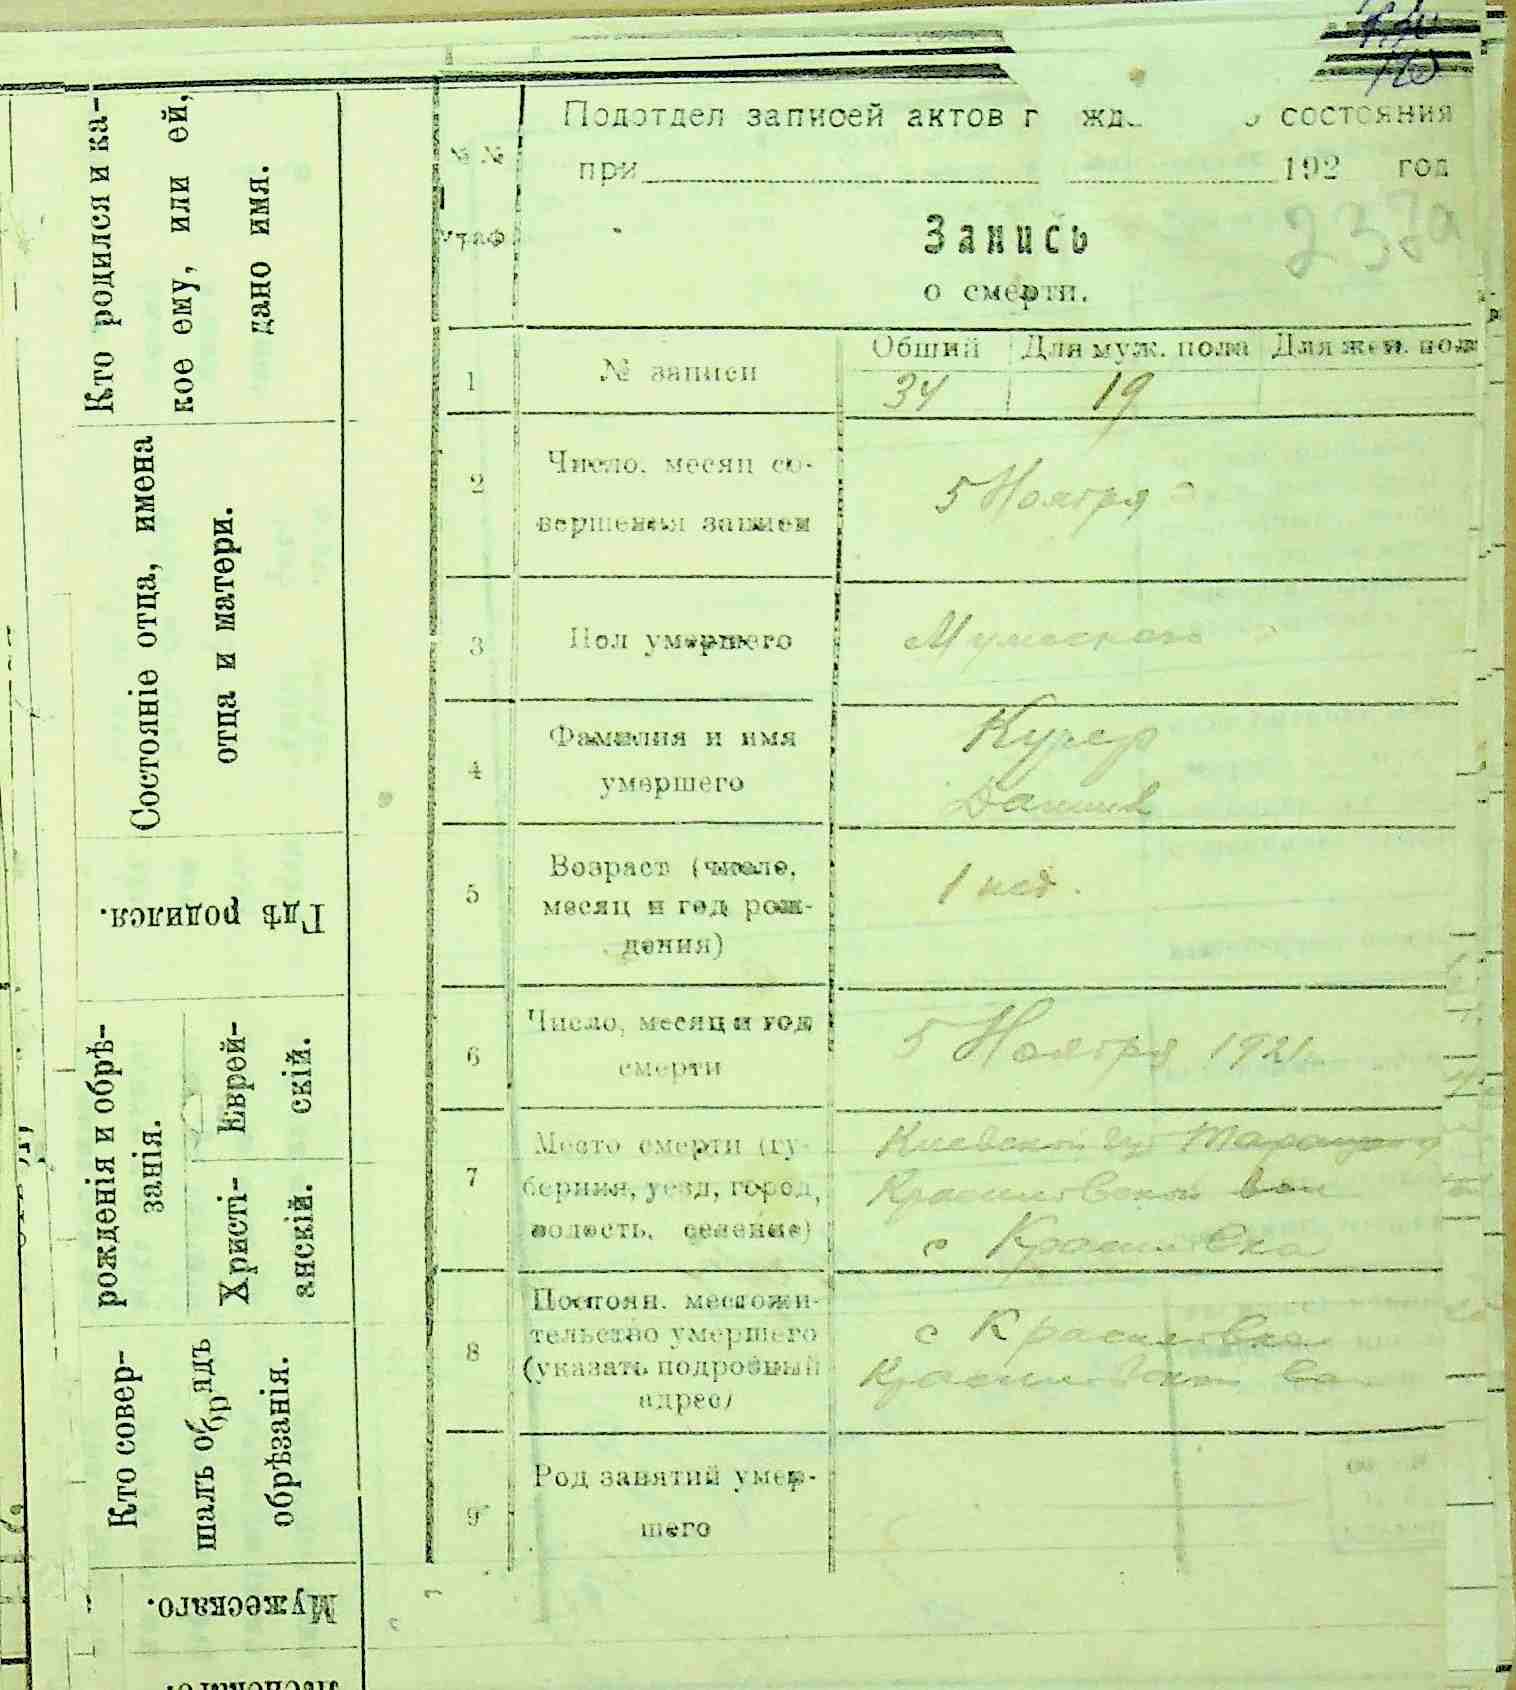 Кто родился и ка-
кое ему, или ей,
дано имя.
Состояніе отца, имена
отца и матери.
Гдѣ родился.
рожденія и обрѣ-
занія.
Еврей-
скій.
Христі-
анскій.
Кто совер-
шалъ обрядъ
обрѣзанія.
Мужескаго.
№ №
граф
Подотдел записей актов состояния
при 192 год
237а
Запись
о смерти.
1 № записи
Общий Для муж. пола Для жен. пола
34 19
2 Число, месяц со-
вершения записи
5 Ноября
3 Пол умершего
Мужеского
4 Фамилия и имя
умершего
Кучер
Даниил
5 Возраст (число,
месяц и год рож-
дения)
1 нед.
6 Число, месяц и год
смерти
5 Ноября 1921
7 Место смерти (гу-
берния, уезд, город,
волость, селение)
Киевской гу
Красиловской вол
с Красиловка
8 Постоян. местожи-
тельство умершего
(указать подробный
адрес)
с Красиловка
Красиловской во
9 Род занятий умер-
шего